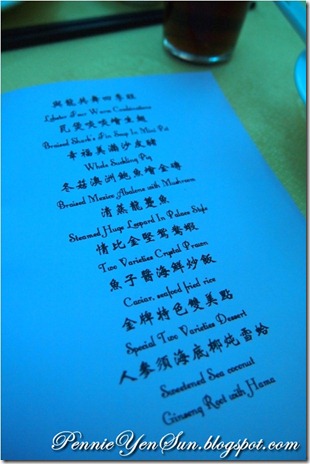 與龍共舞四季拼
Lobster Four Warm Combinations
Braised Shark's Fin Soup In Mini Pot
幸福美滿沙皮豬
Whole Suckling Pig
冬菇澳洲鮑魚燴金磚
Braised Mexico Abalone with Mushroom
清蒸龍躉魚
Steamed Huge Leopard In Palace Style
情比金堅鴛鴦蝦
Two Varieties Crystal Prawn
魚子醬海鮮炒飯
Caviar, seafood fried rice
金牌特色雙美點
Special Two Varieties Dessert
人參須海底椰炖雪蛤
Sweetened Sea coconut
Ginseng Root with Hasma
PennieYenSun.blogspot.com